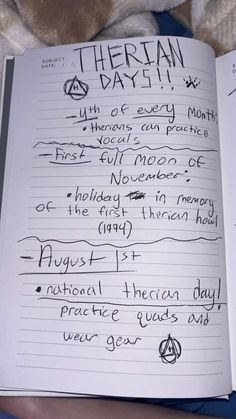 SUBJECT:
DATE:
THERIAN
DAYS!!
- 4th of every month
• therians can practice
vocals
- First full moon of
November:
• holiday in memory
of the first therian howl
(1994)
- August 1st
• national therian day!
practice quads and
wear gear